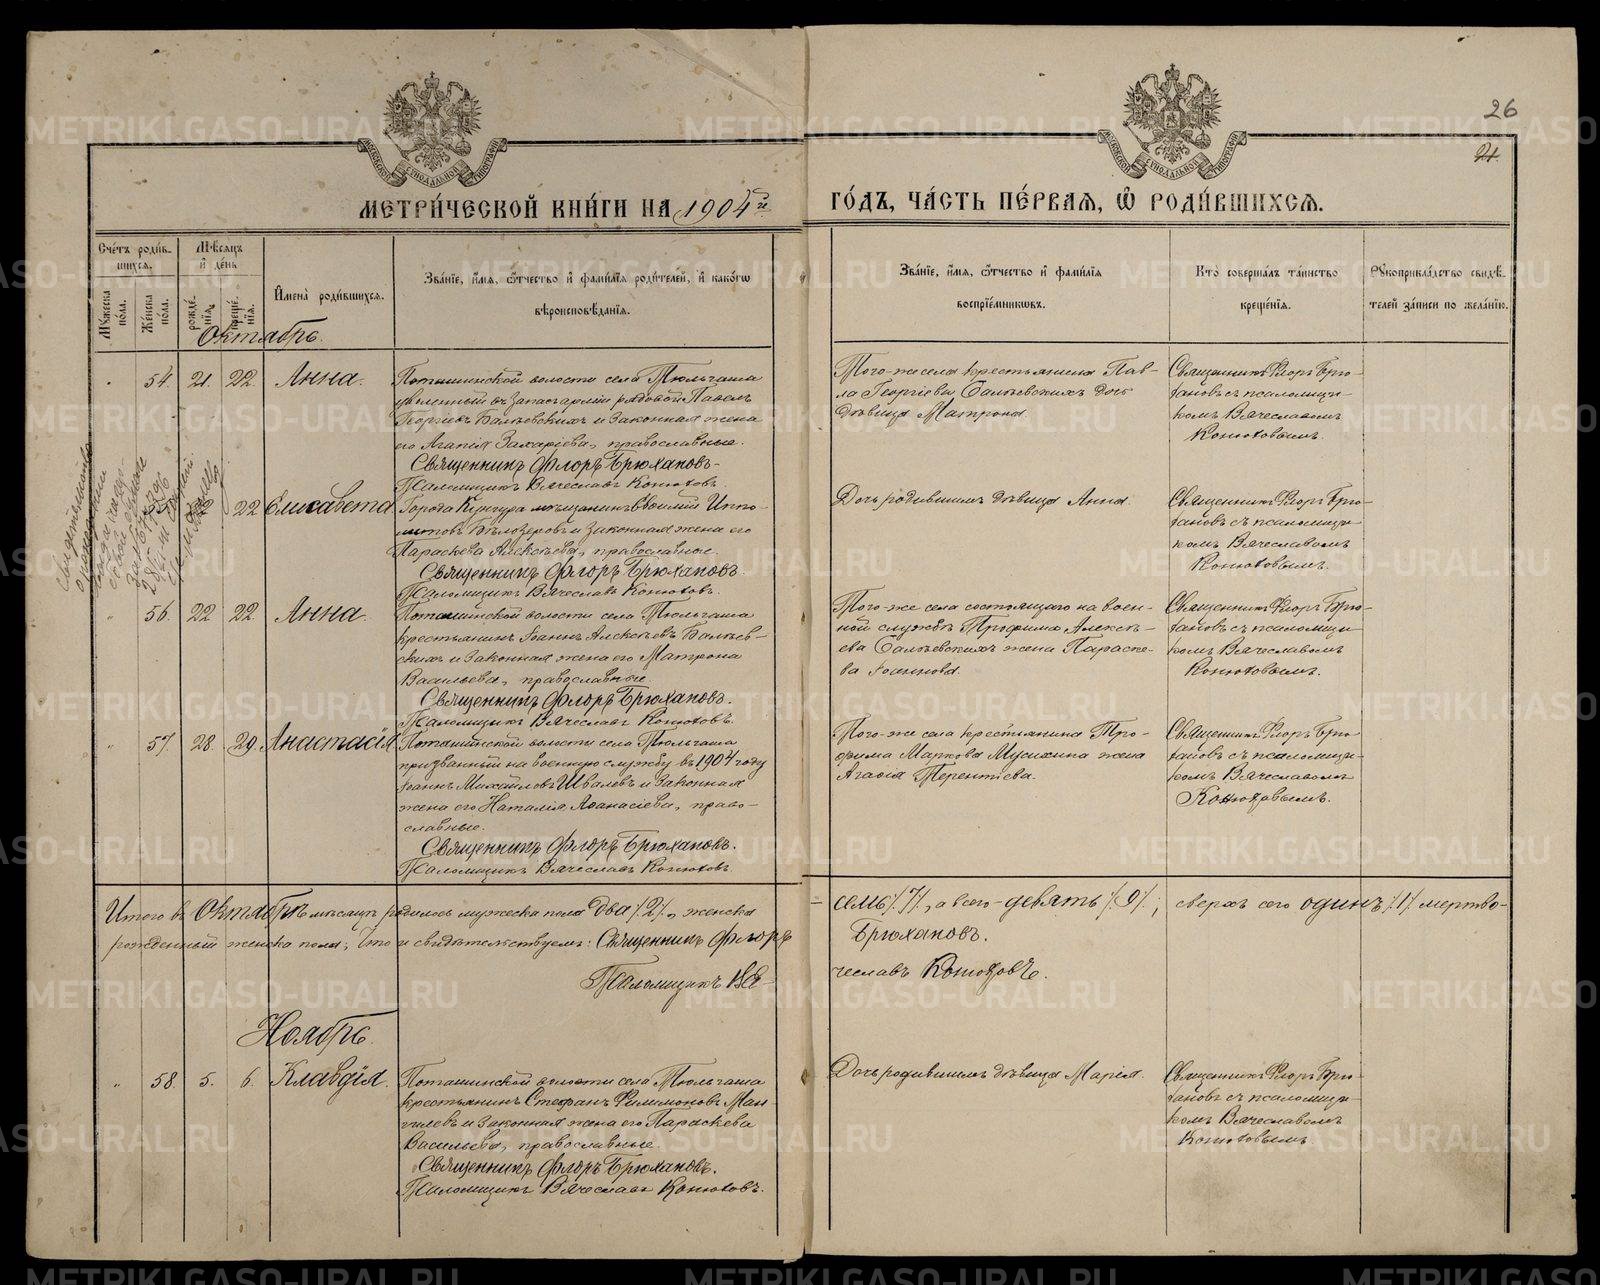 26
21.
МОСКОВСКОЙ СѴНОДАЛЬНОЙ ТИПОГРАФІИ
МОСКОВСКОЙ СѴНОДАЛЬНОЙ ТИПОГРАФІИ
МЕТРИ́ЧЕСКОЙ КНИ́ГИ НА 1904й ГО́ДЪ, ЧА́СТЬ ПЕ́РВАЯ, Ѽ РОДИ́ВШИХСЯ.
Сче́тъ роди́в-
шихся.
Мꙋжеска по́ла.
Же́нска пола.
Мѣ́сяцъ
и҆ де́нь
рожде́нїя.
креще́нїя.
И҆мена̀ роди́вшихся.
Зва́нїе, и҆́мя, ѻ҆́тчество и҆ фамилїя роди́телей, и҆ како́гѡ
вѣроисповѣ́данїя.
Зва́нїе, и҆́мя, ѻ҆́тчество и҆ фами́лїя
воспрїе́мникѡвъ.
Кто̀ соверша́лъ та́инство
креще́нїя.
Рꙋкоприкла́дство свидѣ́-
телей за́писи по жела́нїю.
Октябрь.
54. 21. 22. Анна.
Поташинской волости села Тюльгаша
уволенный въ запасъ арміи рядовой Павелъ
Георгіевъ Балѣевскихъ и законная жена
его Агапія Захаріева, православные.
Священникъ Флоръ Брюхановъ.
Псаломщикъ Вячеславъ Конюховъ.
Того-же села крестьянина Пав-
ла Георгіева Балѣевскихъ дочь
дѣвица Матрона.
Священникъ Флоръ Брю-
хановъ съ псаломщи-
комъ Вячеславомъ
Конюховымъ.
22 22 Елисавета
Города Кунгура мѣщанинъ Евфимій Иппо-
литовъ Бѣлозеровъ и законная жена его
Параскева Алексѣева, православные.
Священникъ Флоръ Брюхановъ.
Псаломщикъ Вячеславъ Конюховъ.
Дочь родившимъ дѣвица Анна.
Священникъ Флоръ Брю-
хановъ съ псаломщи-
комъ Вячеславомъ
Конюховымъ.
56. 22 22. Анна.
Поташинской волости села Тюльгаша
крестьянинъ Іоаннъ Алексѣевъ Балѣев-
скихъ и законная жена его Матрона
Васильева, православные.
Священникъ Флоръ Брюхановъ.
Псаломщикъ Вячеславъ Конюховъ.
Того-же села состоящаго на воен-
ной службѣ Трофима Алексѣ-
ева Балѣевскихъ жена Параске-
ва Іоаннова.
Священникъ Флоръ Брю-
хановъ съ псаломщи-
комъ Вячеславомъ
Конюховымъ.
57. 28. 29. Анастасія
Поташинской волости села Тюльгаша
призванный на военную службу въ 1904 году
Іоаннъ Михайловъ Швалевъ и законная
жена его Наталія Афанасіева, право-
славные.
Священникъ Флоръ Брюхановъ.
Псаломщикъ Вячеславъ Конюховъ.
Того-же села крестьянина Тро-
фима Маркова Мусихина жена
Агафія Терентіева.
Священникъ Флоръ Брю-
хановъ съ псаломщи-
комъ Вячеславомъ
Конюховымъ.
Итого въ Октябрѣ мѣсяцѣ родилось мужеска пола два /2/, женска = семь /7/, а всего девять /9/; сверхъ сего одинъ /1/ мертво-
рожденный женска пола; что и свидѣтельствуемъ: Священникъ Флоръ Брюхановъ.
Псаломщикъ Вя-чеславъ Конюховъ.
Ноябрь.
58. 5. 6. Клавдія.
Поташинской волости села Тюльгаша
крестьянинъ Стефанъ Филимоновъ Ман-
гилевъ и законная жена его Параскева
Васильева, православные.
Священникъ Флоръ Брюхановъ.
Псаломщикъ Вячеславъ Конюховъ.
Дочь родившимъ дѣвица Марія.
Священникъ Флоръ Брю-
хановъ съ псаломщи-
комъ Вячеславомъ
Конюховымъ.
METRIKI.GASO-URAL.RU